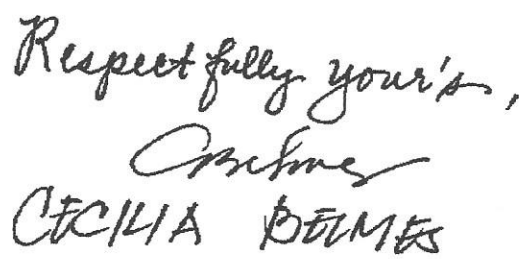 Respectfully your's,
CBelmes
CECILIA BELMES